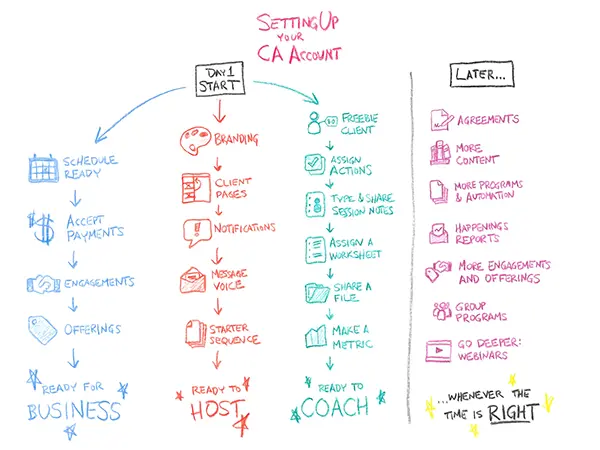 SETTING UP
YOUR
CA ACCOUNT
DAY 1
START
SCHEDULE
READY
ACCEPT
PAYMENTS
ENGAGEMENTS
OFFERINGS
READY FOR
BUSINESS
BRANDING
CLIENT
PAGES
NOTIFICATIONS
MESSAGE
VOICE
STARTER
SEQUENCE
READY TO
HOST
FREEBIE
CLIENT
ASSIGN
ACTIONS
TYPE & SHARE
SESSION NOTES
ASSIGN A
WORKSHEET
SHARE A
FILE
MAKE A
METRIC
READY TO
COACH
LATER...
AGREEMENTS
MORE
CONTENT
MORE PROGRAMS
& AUTOMATION
HAPPENINGS
REPORTS
MORE ENGAGEMENTS
AND OFFERINGS
GROUP
PROGRAMS
GO DEEPER:
WEBINARS
...WHENEVER THE
TIME IS RIGHT